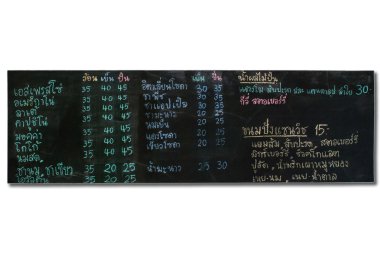 ร้อน เย็น ปั่น
เอสเพรสโซ่ 35 40 45
อเมริกาโน่ 35 40 45
ลาเต้ 35 40 45
คาปูชิโน่ 35 40 45
มอคค่า 35 40 45
โกโก้ 35 40 45
นมสด 35 40 45
ชานม, ชาเขียว 35 20 25
35 20 25
เย็น ปั่น
30 35
ชาพีช 30 35
30 35
ชามะนาว 20 25
นมเย็น 20 25
แดงโซดา 20 25
เขียวโซดา 20 25
น้ำมะนาว 25 30
น้ำผลไม้ปั่น
สับปะรด 30.-
กีวี่ สตอเบอร์รี่
ขนมปังแซนวิช 15.-
แยมส้ม, สับปะรด, สตอเบอร์รี่
มิกซ์เบอร์รี่, ช็อคโกแลต
ปูอัด, น้ำพริกเผาหมูหยอง
เนย-นม, เนย-น้ำตาล